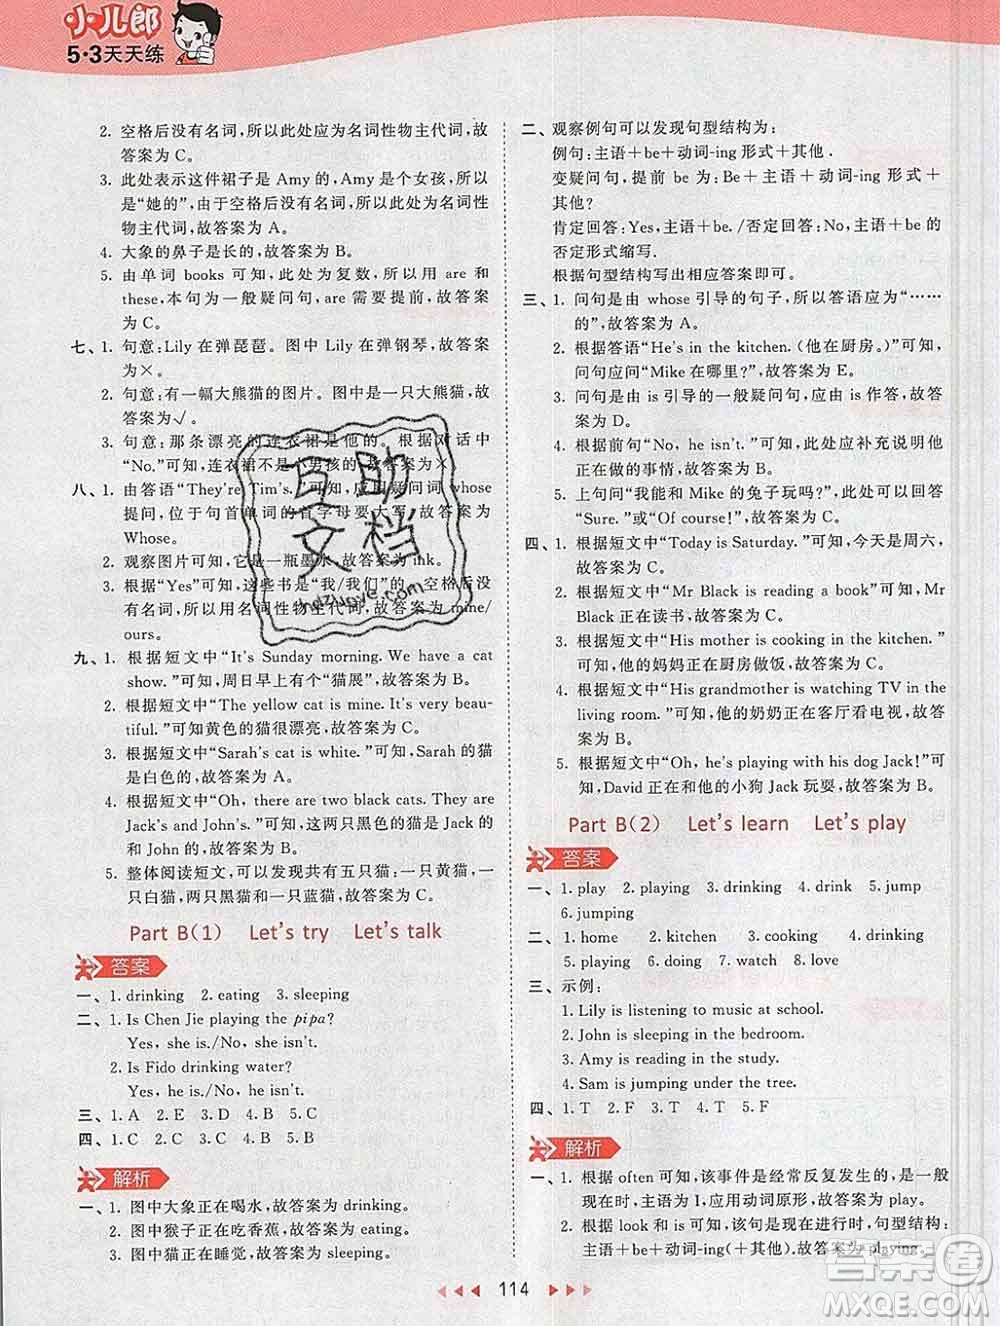 小儿郎
5·3天天练
2. 空格后没有名词,所以此处应为名词性物主代词,故
答案为 C。
3. 此处表示这件裙子是 Amy 的,Amy 是个女孩,所以
是“她的”,由于空格后没有名词,所以此处为名词性
物主代词,故答案为 A。
4. 大象的鼻子是长的,故答案为 B。
5. 由单词 books 可知,此处为复数,所以用 are 和
these,本句为一般疑问句,are 需要提前,故答案
为 C。
七、1. 句意:Lily 在弹琵琶。图中 Lily 在弹钢琴,故答案
为×。
2. 句意:有一幅大熊猫的图片。图中是一只大熊猫,故
答案为√。
3. 句意:那条漂亮的连衣裙是他的。根据对话中
“No.”可知,连衣裙不是男孩的,故答案为×。
八、1. 由答语“They're Tim's.”可知,应用疑问词 whose
提问,位于句首单词的首字母要大写,故答案为
Whose。
2. 观察图片可知,它是一瓶墨水,故答案为 ink。
3. 根据“Yes”可知,这些书是“我/我们”的,空格后没
有名词,所以用名词性物主代词,故答案为 mine/
ours。
九、1. 根据短文中“It's Sunday morning. We have a cat
show.”可知,周日早上有“猫展”,故答案为 C。
2. 根据短文中“The yellow cat is mine. It's very beau-
tiful.”可知黄色的猫很漂亮,故答案为 C。
3. 根据短文中“Sarah's cat is white.”可知,Sarah 的猫
是白色的,故答案为 A。
4. 根据短文中“Oh, there are two black cats. They are
Jack's and John's.”可知,这两只黑色的猫是 Jack 的
和 John 的,故答案为 B。
5. 整体阅读短文,可以发现共有五只猫:一只黄猫,
一只白猫,两只黑猫和一只蓝猫,故答案为 C。
Part B(1) Let's try Let's talk
答案
一、1. drinking 2. eating 3. sleeping
二、1. Is Chen Jie playing the pipa?
Yes, she is./No, she isn't.
2. Is Fido drinking water?
Yes, he is./No, he isn't.
三、1. A 2. E 3. D 4. B 5. C
四、1. A 2. C 3. C 4. B 5. C
解析
一、1. 图中大象正在喝水,故答案为 drinking.
2. 图中猴子正在吃香蕉,故答案为 eating.
3. 图中猫正在睡觉,故答案为 sleeping.
二、观察例句可以发现句型结构为:
例句:主语+be+动词-ing 形式+其他.
变疑问句,提前 be 为:Be+主语+动词-ing 形式+
其他?
肯定回答:Yes,主语+be. /否定回答:No,主语+be 的
否定形式缩写.
根据句型结构写出相应答案即可。
三、1. 问句是由 whose 引导的句子,所以答语应为“……
的”,故答案为 A。
2. 根据答语“He's in the kitchen.(他在厨房。)”可知,
问句应问“Mike 在哪里?”,故答案为 E。
3. 问句是由 is 引导的一般疑问句,应由 is 作答,故答
案为 D。
4. 根据前句“No, he isn't.”可知,此处应补充说明他
正在做的事情,故答案为 B。
5. 上句问“我能和 Mike 的兔子玩吗?”,可以回答
“Sure.”或“Of course!”,故答案为 C。
四、1. 根据短文中“Today is Saturday.”可知,今天是周六,
故答案为 A。
2. 根据短文中“Mr Black is reading a book”可知,Mr
Black 正在读书,故答案为 C。
3. 根据短文中“His mother is cooking in the kitchen. ”
可知,他的妈妈正在厨房做饭,故答案为 C。
4. 根据短文中“His grandmother is watching TV in the
living room.”可知,他的奶奶正在客厅看电视,故答
案为 B。
5. 根据短文中“Oh, he's playing with his dog Jack!”可
知,David 正在和他的小狗 Jack 玩耍,故答案为 C。
Part B(2) Let's learn Let's play
答案
一、1. play 2. playing 3. drinking 4. drink 5. jump
6. jumping
二、1. home 2. kitchen 3. cooking 4. drinking
5. playing 6. doing 7. watch 8. love
三、示例:
1. Lily is listening to music at school.
2. John is sleeping in the bedroom.
3. Amy is reading in the study.
4. Sam is jumping under the tree.
四、1. T 2. F 3. T 4. T 5. F
解析
一、1. 根据 often 可知,该事件是经常反复发生的,是一般
现在时,主语为 I,应用动词原形,故答案为 play。
2. 根据 look 和 is 可知,该句是现在进行时,句型结构:
主语+be+动词-ing(+其他).故答案为 playing。
114
互助
文档
hdzuoye.com
答案圈
MXQE.COM